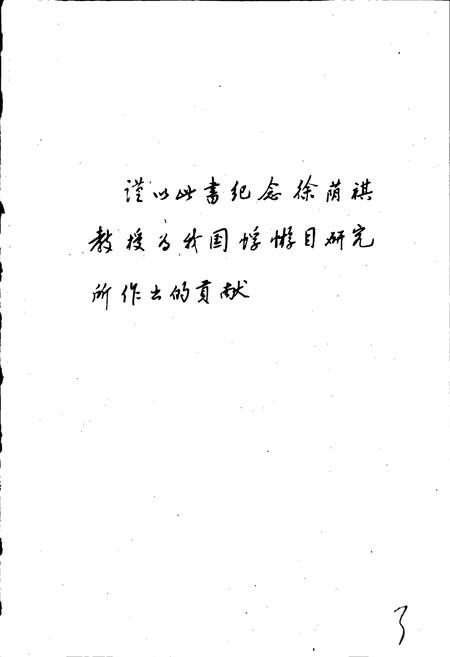 谨以此书纪念徐荫祺
教授为我国蜉蝣目研究
所作出的贡献
3